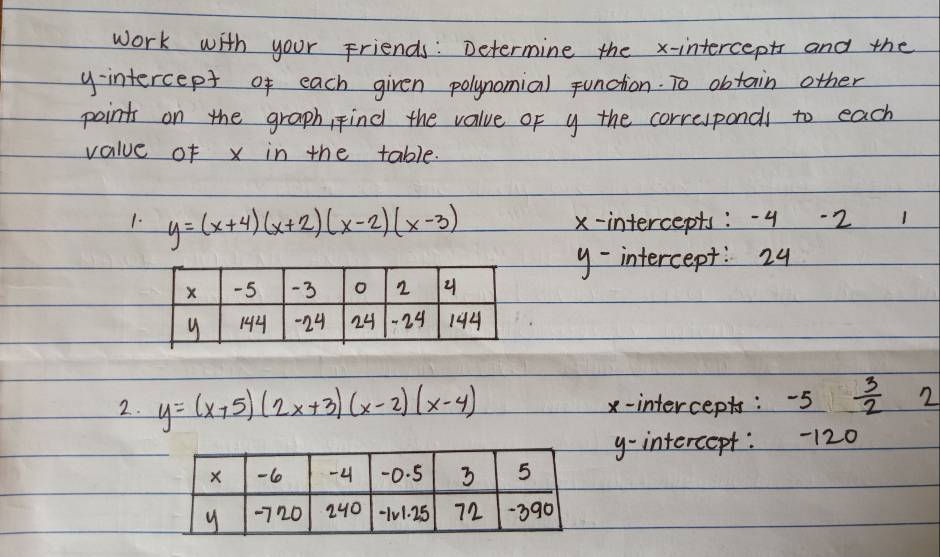 Work with your Friends: Determine the x-intercepts and the
y-intercept of each given polynomial Function. To obtain other
points on the graph, Find the value of y the corresponds to each
value of x in the table.
1. y=(x+4)(x+2)(x-2)(x-3)
x-intercepts: -4 -2 1
y-intercept: 24
x -5 -3 0 2 4
y 144 -24 24 -24 144
2. y=(x+5)(2x+3)(x-2)(x-4)
x-intercepts: -5 3/2 2
y-intercept: -120
x -6 -4 -0.5 3 5
y -720 240 -101.25 72 -390